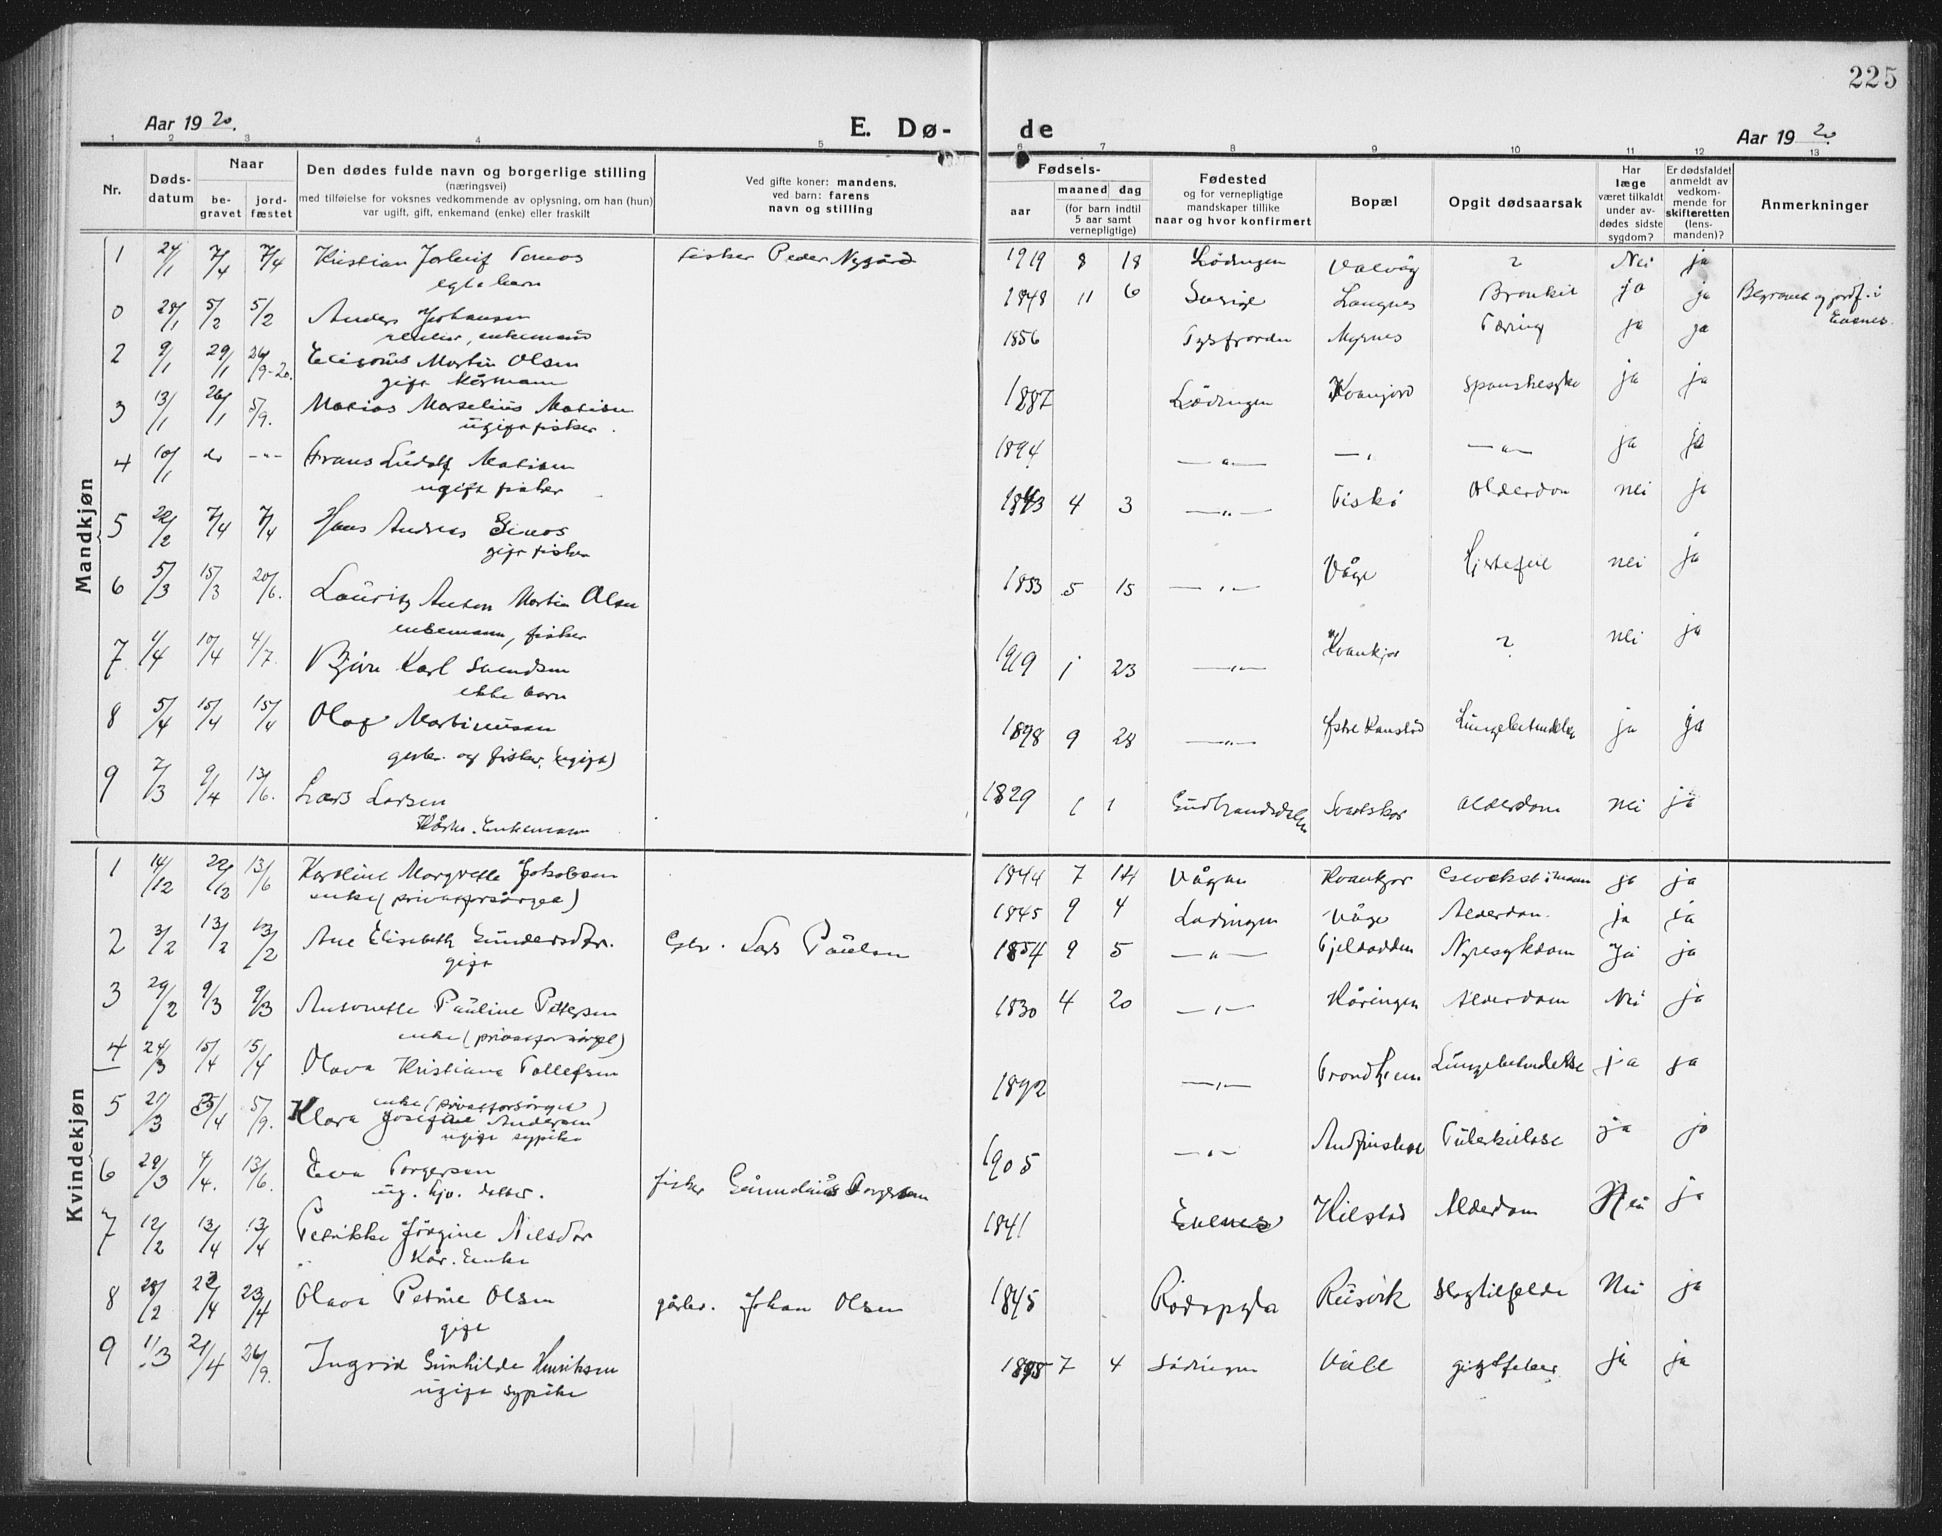 225
Aar 1920.
E. Dø-
de
Aar 1920.
1 2 3 4 5 6 7 8 9 10 11 12 13
Nr.
Døds-
datum
Naar
be-
gravet
jord-
fæstet
Den dødes fulde navn og borgerlige stilling
(næringsvei)
med tilføielse for voksnes vedkommende av oplysning, om han (hun)
var ugift, gift, enkemand (enke) eller fraskilt
Ved gifte koner: mandens,
ved barn: farens
navn og stilling
Fødsels-
aar
maaned dag
(for barn indtil
5 aar samt
vernepligtige)
Fødested
og for vernepligtige
mandskaper tillike
naar og hvor konfirmert
Bopæl
Opgit dødsaarsak
Har
læge
været tilkaldt
under av-
dødes sidste
sygdom?
Er dødsfaldet
anmeldt av
vedkom-
mende for
skifteretten
(lens-
manden)?
Anmerkninger
Mandkjøn
1 24/1 7/4 7/4 Kristian fisker Peder Nygård 1919 8 18 Lödingen ? Nei ja
egte barn
0 28/1 5/2 5/2 Anders Johansen 1848 11 6 Sverige Langnes Bronkit ja ja Begravet og jordf. i
enkemann Evenes.
2 9/1 29/1 26/9-20. Martin Olsen 1856 Tysfjorden Myrnes Tæring ja ja
gift
3 13/1 26/1 5/9. Matias Marselius 1887 Lødingen spanskesyke ja ja
ugift fisker.
4 10/1 do -"- Frans Ludolf 1894 -"- -"- -"- ja ja
ugift fisker
5 22/2 7/4 7/4 Hans Andreas 4 3 -"- Fiskö Alderdom nei ja
gift fisker
6 5/3 15/3 20/6. Lauritz Anton Martin Olsen 1853 5 15 -"- Våge Hjertefeil nei ja
enkemann, fisker
7 1/4 10/4 4/7. Karl Svendsen 1919 1 23 -"- Kvankjor ? nei ja
barn
8 5/4 15/4 15/4 Olaf Martinusen 1898 9 28 -"- Østre Kanstad Lungebetendelse ja ja
og fisker, (ugift)
9 2/3 9/4 13/6. Lars Larsen 1829 1 1 Gudbrandsdalen Svartskar Alderdom nei ja
Enkemann
Kvindekjøn
1 14/12 13/6 Karoline Margrette Jakobsen 1844 7 14 Vågan Kvankjor ja ja
enke (privatforsörget)
2 3/2 13/2 13/2 Ane Elisabeth Gundersdtr. Lars Paulsen 1845 9 4 Lødingen Våge Alderdom. ja ja
gift
3 29/2 9/3 9/3 Antonette Pauline Pettersen 1854 9 5 -"- Fjeldodden Nyresykdom ja ja
enke (privatforsörget)
4 24/3 15/4 15/4 Olava Kristiane Tollefsen 1830 4 20 -"- Håringen Alderdom Nei ja
enke (privatforsörget)
5 29/3 5/9. Klara Josefine Andersen 1892 -"- Trondhjem Lungebetendelse ja ja
ugift sypike
6 29/3 4/4. 13/6. Eva Torgersen fisker Torgersen 1905 -"- Tuberkulose ja ja
ug. hjv. datter.
7 12/2 13/4 13/4 Petrikke Jörgine Nilsdtr 1841 Evenes Kilstad Alderdom Nei ja
Kår. Enke
8 28/2 23/4 23/4 Olava Petrine Olsen gårbr. Johan Olsen 1845 Rusvik slagtilfelde Nei ja
gift
9 11/3 21/4 26/9. Ingrid Gunhilde Henriksen 7 4 Lödingen Våll gigtfeber ja ja
ugift sypike